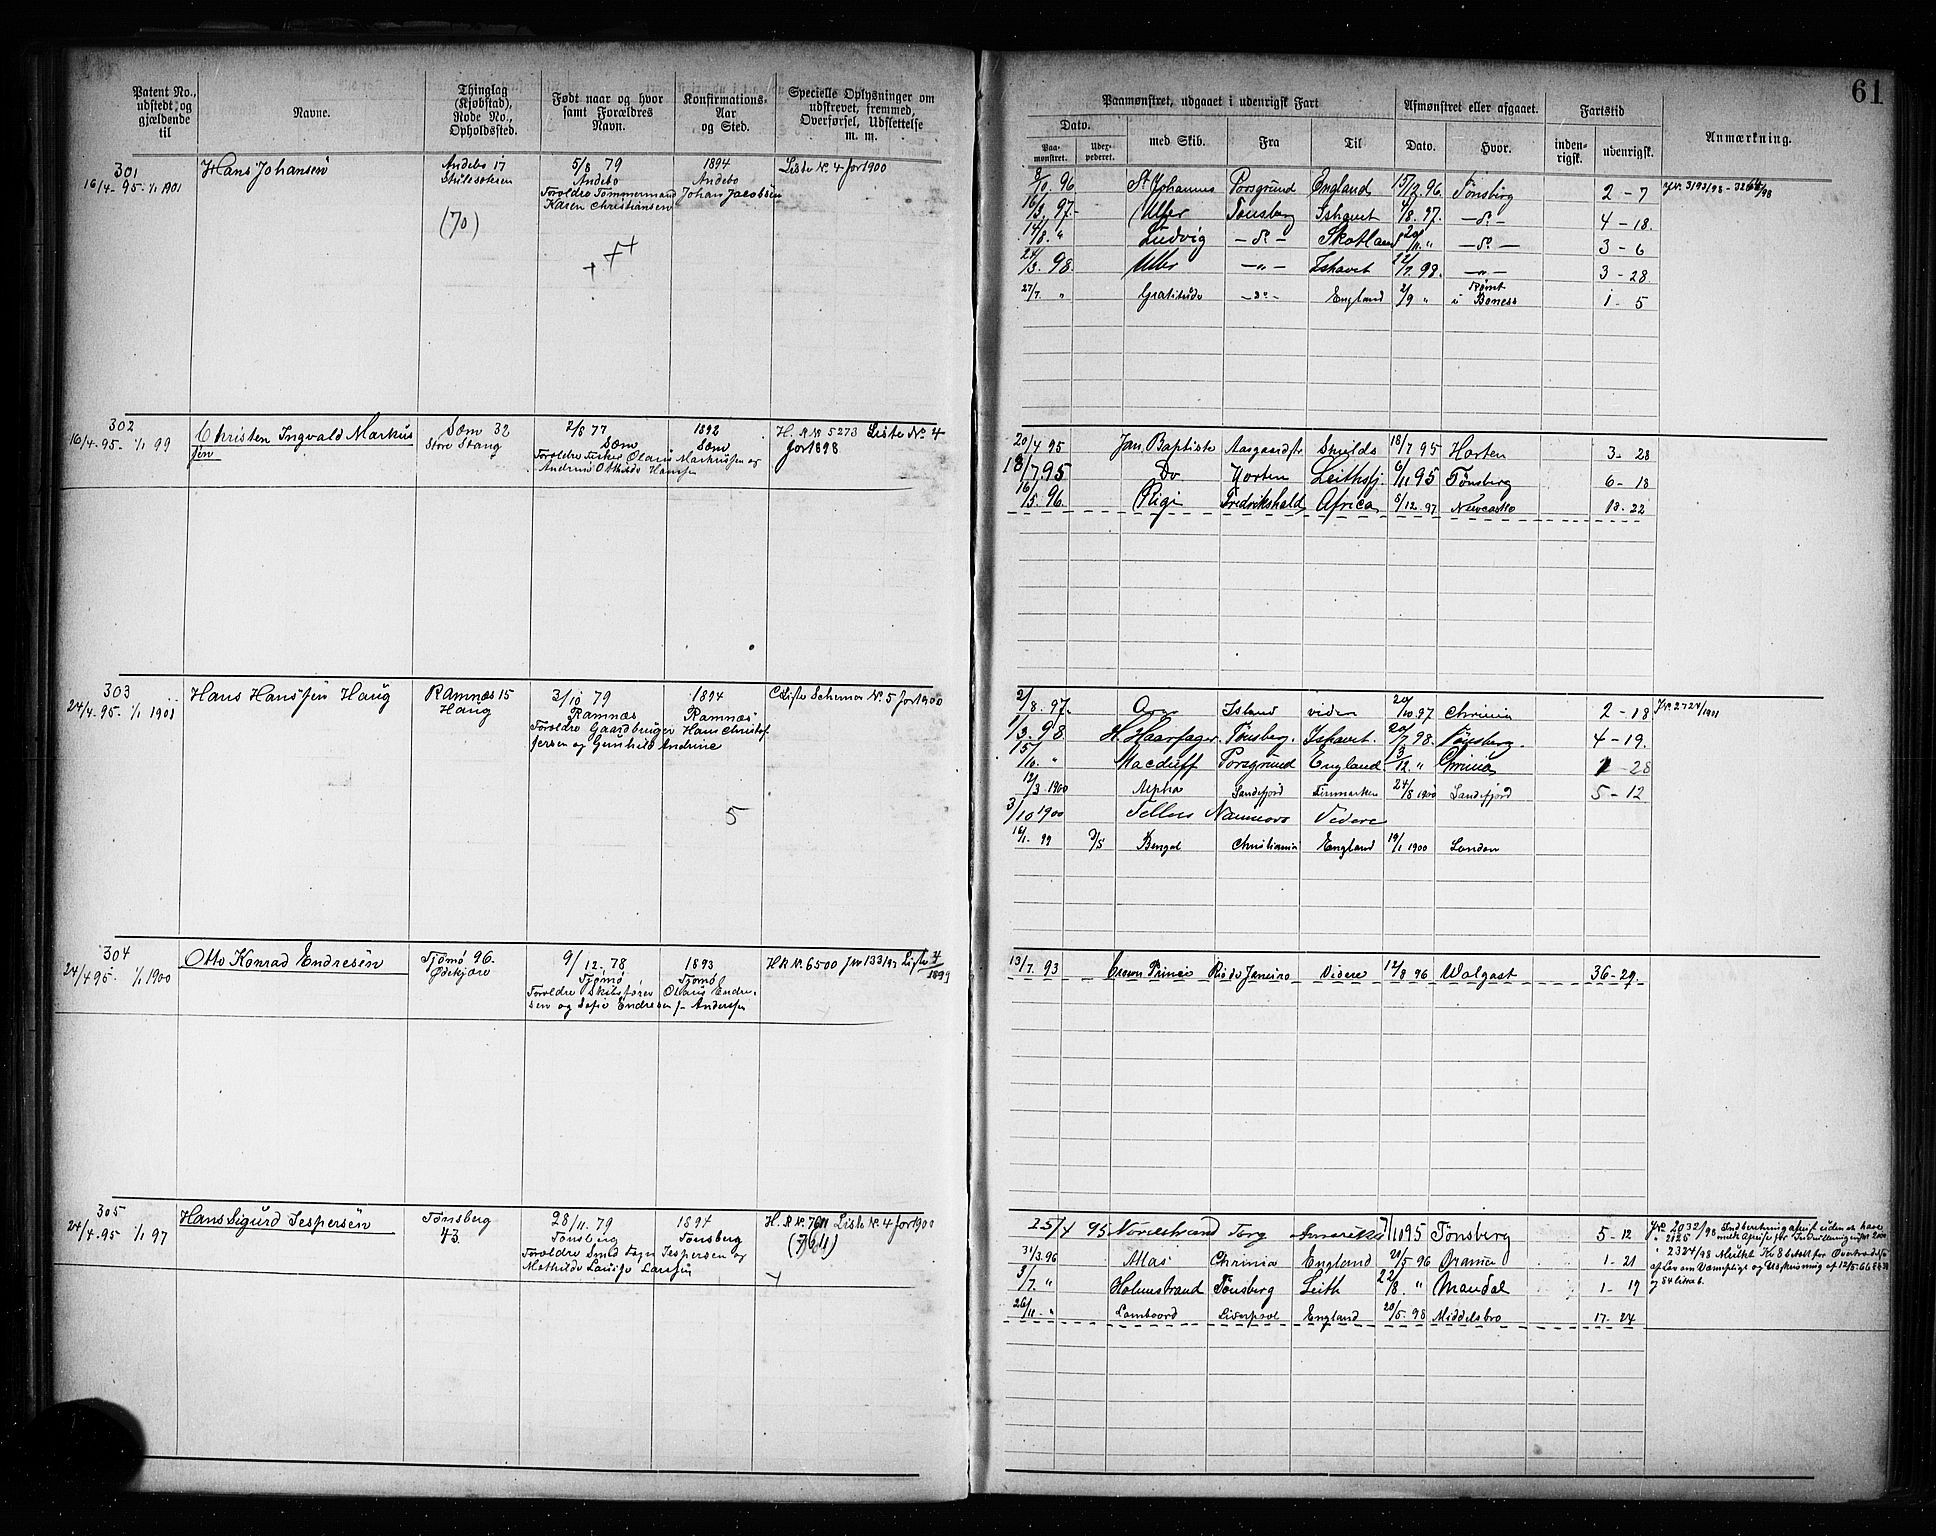 61
Patent No., udstedt og gjældende til
Navne.
Thinglag (Kjøbstad), Rode No., Opholdssted.
Født naar og hvor samt Forældres Navn.
Konfirmations-Aar og Sted.
Specielle Oplysninger om udskrevet, fremmed, Overførsel, Udslettelse m. m.
Paamønstret, udgaaet i udenrigsk Fart
Afmønstret eller afgaaet.
Fartstid
Anmærkning.
Dato.
Paa-mønstret.
Udex-pederet.
med Skib.
Fra
Til
Dato.
Hvor.
inden-rigsk.
udenrigsk.
301
16/4-95-1/1 1901
Hans Johansen
Andebo 17
(70)
5/8 79
Andebo
Forældre Tømmermand Johan Jacobsen
Karen Christiansen
1894
Andebo
Liste No. 4 for 1900
96 St Johannes Porsgrund England 15/12 96 Tønsberg 2-7
16/3 97 Uller Tønsberg Ishavet 4/8 97 -do- 4-18
14/8 " Ludvig -do- Skotland -do- 3-6
24/3 98 Uller -"- Ishavet 22/7 98 -"- 3-28
27/7 " Gratitude -do- England 2/9 " Rømt i Boness 1-5
302
16/4-95-1/1 99
Christen Ingvald Markus
sen
Sæm 32
Store Stang
2/8 77
Sæm
Forældre Fisker Olaus Markussen og
1892
Sæm
H. R No 5273 Liste No. 4
for 1898
20/4 95 Jan Baptiste Shields 18/7 95 Horten 3-28
18/7 95 Do Horten 6/11 95 Tønsberg 6-18
16/5 96 Rigi Fredrikshald Africa 5/12 97 Newcastle 18-22
303
24/4-95-1/1 1901
Hans Hanssen Haug
Ramnæs 15
Haug
3/10 79
Ramnæs
Forældre Gaardbruger Hans Christof
fersen og Gunhild Andrine
1894
Ramnæs
5
No. 5 for 1900
2/8 97 Island videre 20/10 97 Chrinia 2-18
Jr. 2724/1901
1/3 98 H. Haarfager Tønsberg Ishavet 20/7 98 Tønsberg 4-19
Macduff Porsgrund England 3/12 " Chrinia 1-28
12/3 1900 Alpha Sandefjord Finmarken 24/8 1900 Sandefjord 5-12
3/10 1900 Videre
16/1 99 3/5 Bengal Christiania England 19/1 1900 London
304
24/4 95-1/1 1900
Otto Konrad Endresen
Tjømø 96
9/12 78
Tjømø
Forældre Skibsfører Olaus Endre-
sen og Sofie Endresen f. Anderssen
1893
Tjømø
HR No. 6500 Jr 133/97 Liste 4/1899
13/7 93 Crown Prince Rio de Janeiro Videre 12/8 96 Wolgast 36-29
305
24/4-95 1/1 97
Hans Sigurd Jespersen
Tønsberg
43
28/11 79
Tønsberg
Jespersen og
Mathilde Lovise Larssen
1894
Tønsberg
H. R No. 7611 Liste No. 4 for 1900
(7611)
25/4 95 Nordstrand 95 Tønsberg 5-12
31/3 96 Atlas Chrinia England 20/5 96 Drammen 1-21
3/7 " Holmestrand Tønsberg Leith 22/8 " Mandal 1-19
26/11 " Liverpool England 20/5 98 Middelsbro 17-24